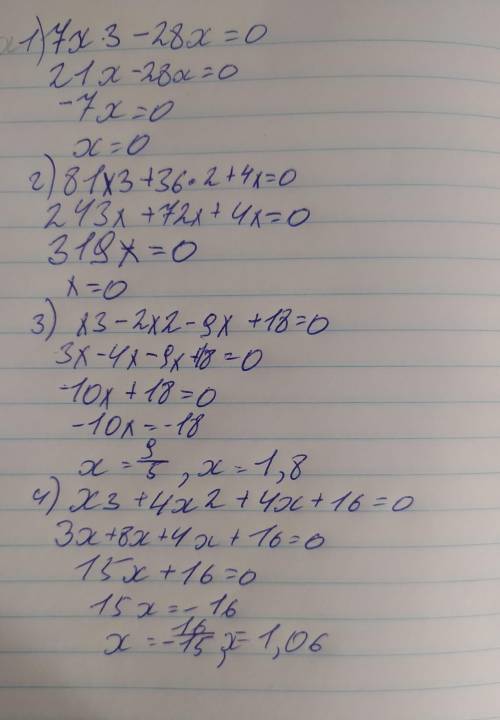 1) 7x3 - 28x = 0
21x - 28x = 0
-7x = 0
x = 0
2) 81x3 + 36·2 + 4x = 0
243x + 72x + 4x = 0
319x = 0
x = 0
3) x3 - 2x2 - 9x + 18 = 0
3x - 4x - 9x + 18 = 0
-10x + 18 = 0
-10x = -18
x = 9/5, x = 1,8
4) x3 + 4x2 + 4x + 16 = 0
3x + 8x + 4x + 16 = 0
15x + 16 = 0
15x = -16
x = -16/15, x = 1,06